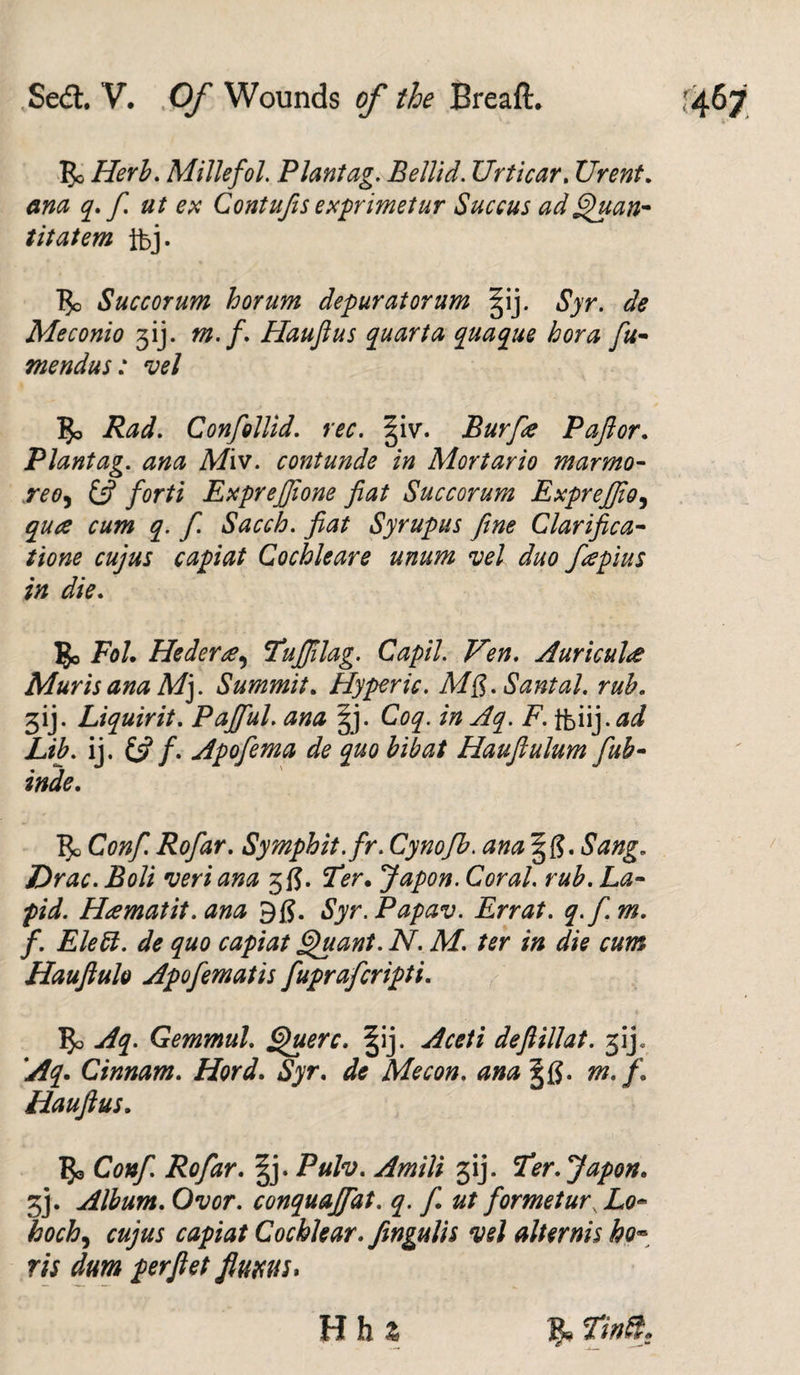 Sect. V. Of Wounds of the Breaſt. 467
℞ Herb. Millefol. Plantag. Bellid. Urticar. Urent.
ana q. ſ. ut ex Contuſis exprimetur Succus ad Quan-
titatem ℔j.
℞ Succorum horum depuratorum ℥ij. Syr. de
Meconio ʒij. m. f. Hauſtus quarta quaque hora ſu-
mendus: vel
℞ Rad. Conſollid. rec. ℥iv. Burſæ Paſtor.
Plantag. ana Miv. contunde in Mortario marmo-
reo, & forti Expreſſione fiat Succorum Expreſſio,
quæ cum q. ſ. Sacch. fiat Syrupus ſine Clarifica-
tione cujus capiat Cochleare unum vel duo ſæpius
in die.
℞ Fol. Hederæ, Tuſſilag. Capil. Ven. Auriculæ
Muris ana Mj. Summit. Hyperic. Mß. Santal. rub.
ʒij. Liquirit. Paſſul. ana ℥j. Coq. in Aq. F. ℔iij. ad
Lib. ij. & f. Apoſema de quo bibat Hauſtulum ſub-
inde.
℞ Conſ. Roſar. Symphit. fr. Cynoſb. ana ℥ß. Sang.
Drac. Boli veri ana ʒß. Ter. Japon. Coral. rub. La-
pid. Hæmatit. ana ℈ß. Syr. Papav. Errat. q. ſ. m.
f. Elect. de quo capiat Quant. N. M. ter in die cum
Hauſtulo Apoſematis ſupraſcripti.
℞ Aq. Gemmul. Querc. ℥ij. Aceti deſtillat. ʒij.
Aq. Cinnam. Hord. Syr. de Mecon. ana ℥ß. m. f.
Hauſtus.
℞ Conſ. Roſar. ℥j. Pulv. Amili ʒij. Ter. Japon.
ʒj. Album. Ovor. conquaſſat. q. ſ. ut formetur Lo-
hoch, cujus capiat Cochlear. ſingulis vel alternis ho-
ris dum perſtet fluxus.
H h 2 ℞ Tinct.